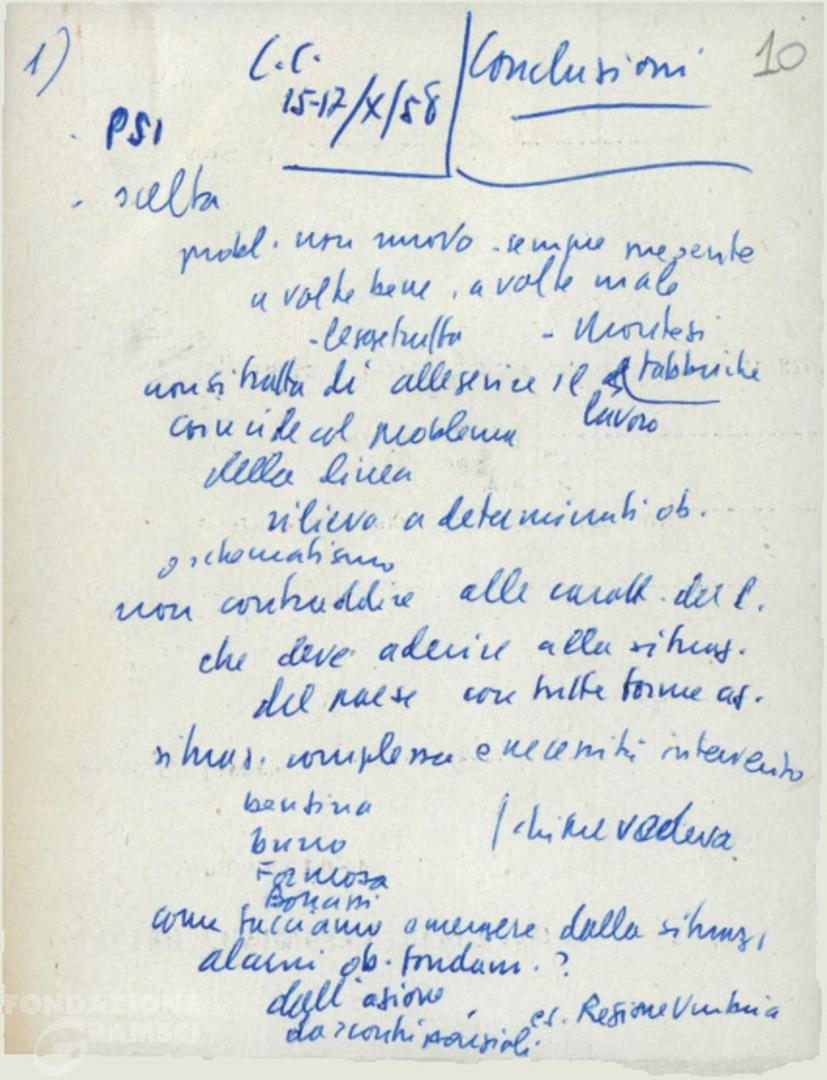 1) C.C. Conclusioni 10
15-17/X/58
- PSI
- scelta
probl. non nuovo - sempre presente
a volte bene, a volte male
- legge truffa - Montesi
non si tratta di alleggerire il fabbriche
lavoro
coincide col problema
della linea
rilievo a determinati ob.
schematismo
non contraddire alle caratt. del P.
che deve aderire alla situaz.
del paese con tutte forme az.
situaz. complessa e necessità intervento
benzina
burro
Formosa
Bonomi
chi prevedeva
come facciamo emergere dalla situaz.
alcuni ob. fondam. ?
dall'azione
da scontri parziali. es. Regione Umbria
FONDAZIONE
GRAMSCI